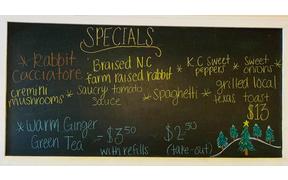 SPECIALS
* Rabbit Cacciatore
Braised N.C farm raised rabbit * K.C sweet peppers * sweet onions *
cremini mushrooms * saucry tomato sauce * spaghetti * grilled local texas toast
$13
* Warm Ginger Green Tea - $3.50 with refills - $2.50 (take-out)